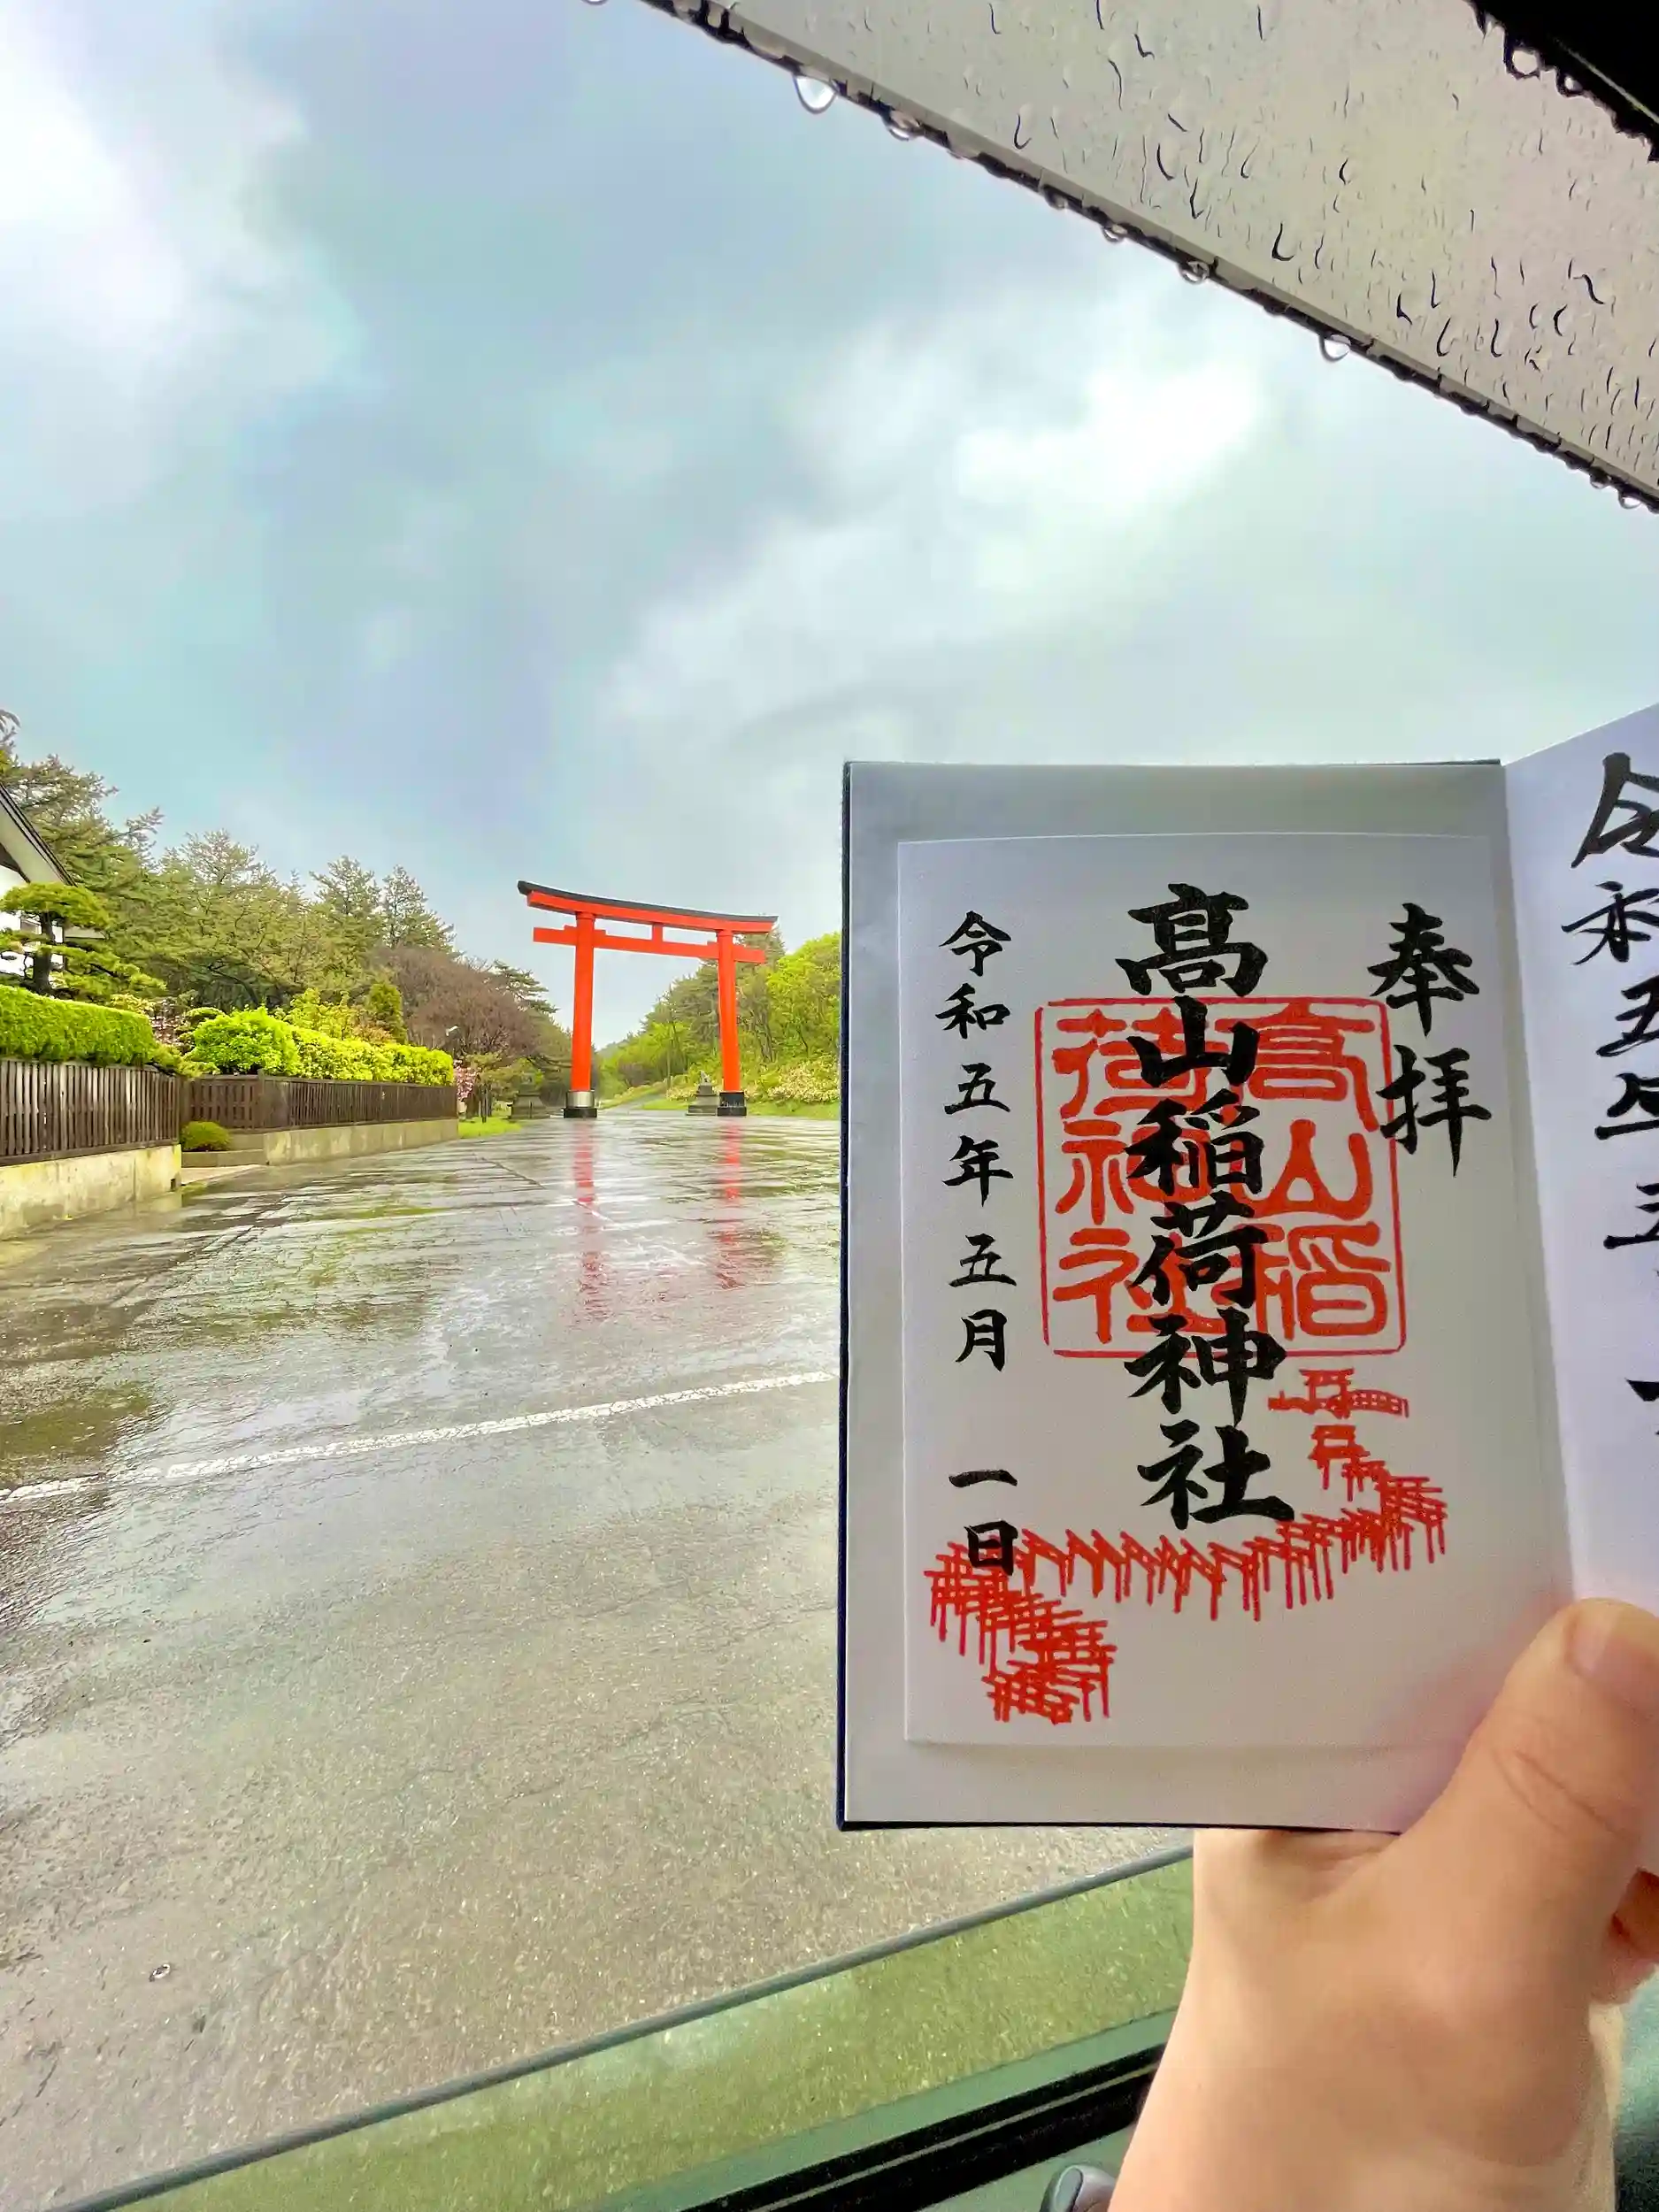 奉拝
髙山稲荷神社
髙山稲
荷神社
令和五年五月一日
令和五年五